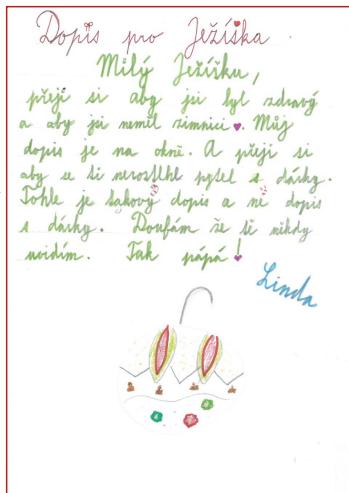 Dopis pro Ježíška
Milý Ježíšku,
přeji si aby jsi byl zdravý
a aby jsi neměl zimnici. Můj
dopis je na okně. A přeji si
aby se ti neroztrhl pytel s dárky.
Tohle je takový dopis a ne dopis
s dárky. Doufám že tě někdy
uvidím. Tak pápá!
Linda